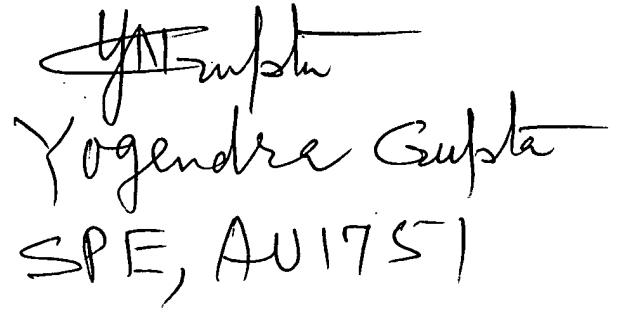 YNGupta
Yogendra Gupta
SPE, AU1751